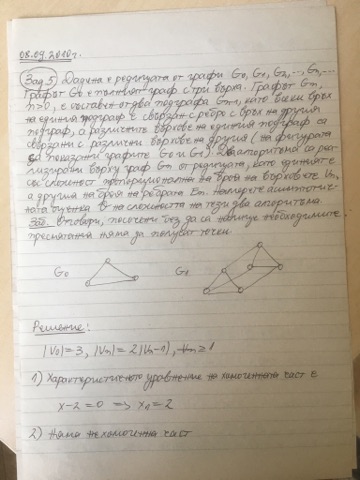 08.09.2010г.
Зад 5) Дадена е редицата от графи G0, G1, G2, ..., Gn, ...
Графът G0 е пълният граф с три върха. Графът Gn,
n>0, е съставен от два подграфа Gn-1, като всеки връх
на единия подграф е свързан с ребро с връх на другия
подграф, а различните върхове на единия подграф са
свързани с различни върхове на другия (на фигурата
са показани графите G0 и G1). Два алгоритъма са реа-
лизирани върху граф Gn от редицата, като единият е
със сложност пропорционална на броя на върховете Vn,
а другия на броя на ребрата Em. Намерете асимптотич-
ната оценка на сложността на тези два алгоритъма.
Заб. Отговори, посочени без да са налице необходимите
пресмятания няма да получат точки.
G0 G1
Решение:
|V0|=3, |Vn|=2|Vn-1|, n≥1
1) Характеристичното уравнение на хомогенната част е
x-2=0 ⇒ x1=2
2) Няма нехомогенна част